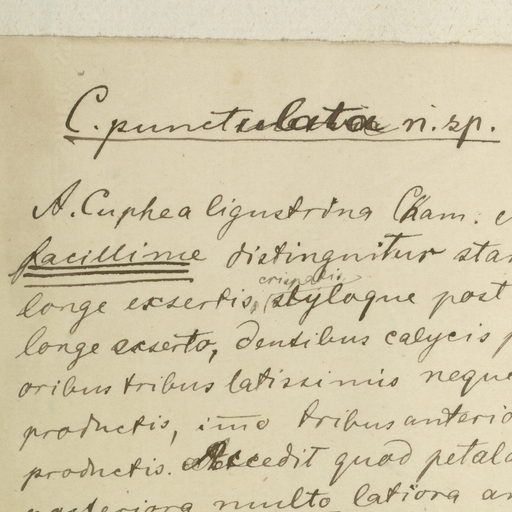 C. punctulata n. sp.
A. Cuphea ligustrina Cham.
facillime distinguitur
longe exsertis, styloque post
longe exserto, dentibus calycis
oribus tribus latissimis neque
productis, imo tribus anterio
productis. Accedit quod petala
posteriora multo latiora